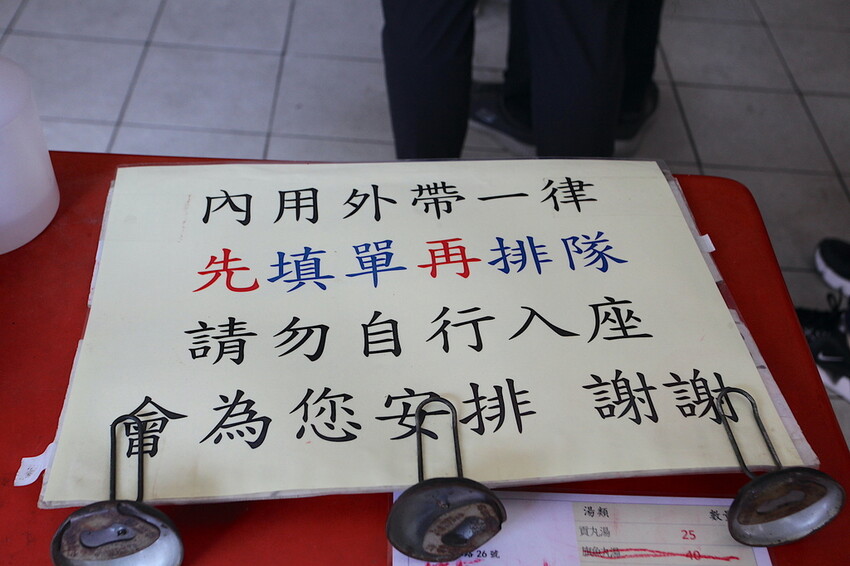 內用外帶一律
先填單再排隊
請勿自行入座
會為您安排 謝謝
湯類
貢丸湯 25
旗魚丸湯 40
路26號